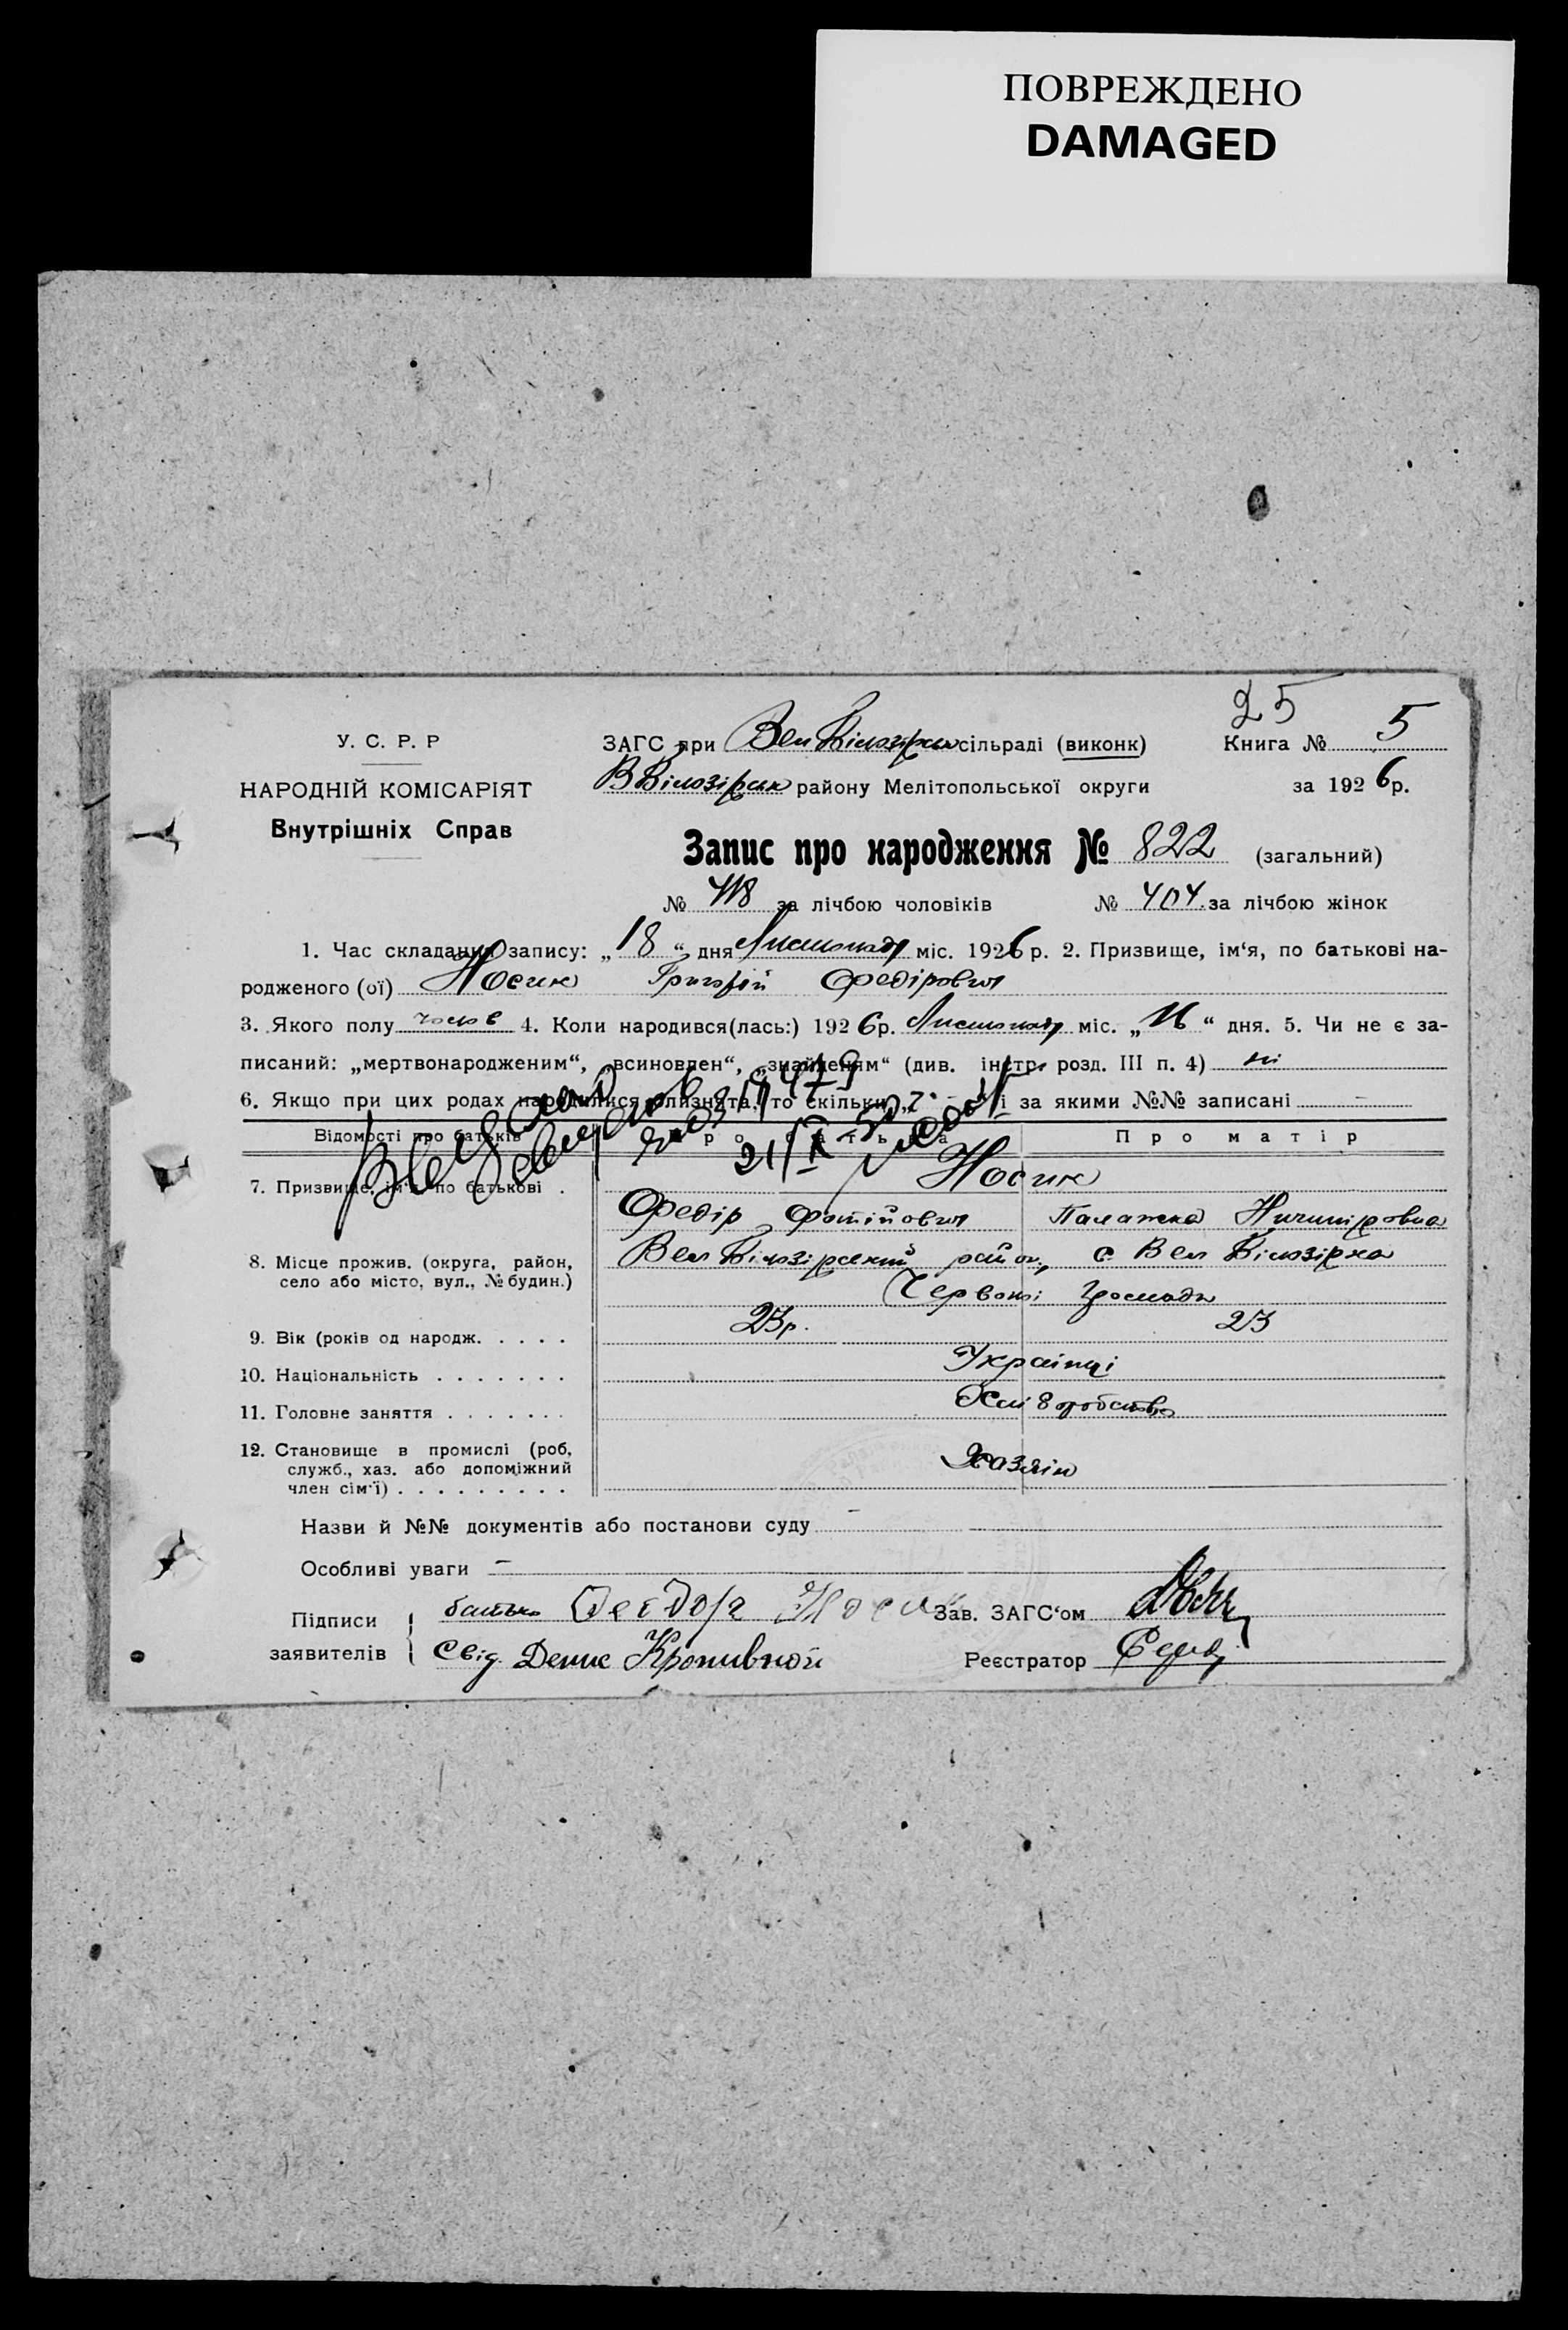 ПОВРЕЖДЕНО
DAMAGED
25
У. С. Р. Р
НАРОДНІЙ КОМІСАРІЯТ
Внутрішніх Справ
ЗАГС при Вел Білозірськ сільраді (виконк) Книга № 5
В Білозірськ району Мелітопольської округи за 1926р.
Запис про народження № 822 (загальний)
№ 418 за лічбою чоловіків № 404 за лічбою жінок
1. Час складання запису: „18“ дня Листопаду міс. 1926 р. 2. Призвище, ім‘я, по батькові на-
родженого (ої) Носик Григорій Федірович
3. Якого полу чолов 4. Коли народився(лась:) 1926р. Листопаду міс. „16“ дня. 5. Чи не є за-
писаний: „мертвонародженим“, „всиновлен“, „знайденям“ (див. інстр. розд. III п. 4) ні
6. Якщо при цих родах народилися близнята, то скільки „ і за якими №№ записані
Відомості про батьків Про батька Про матір
21/IX-50
7. Призвище, ім‘я, по батькові . Носик
Федір Фотійович Палажка Ничипіровна
8. Місце прожив. (округа, район, Вел Білозірський район, с. Вел Білозірка
село або місто, вул., № будин.) Червоної Громади
9. Вік (років од народж. . . . . 23р. 23
10. Національність . . . . . . . Українці
11. Головне заняття . . . . . . . Хліборобство
12. Становище в промислі (роб,
служб., хаз. або допоміжний Хазяїн
член сім‘ї) . . . . . . . . .
Назви й №№ документів або постанови суду –
Особливі уваги –
Підписи батько Феєдор Носик Зав. ЗАГС‘ом
заявителів Свід. Денис Кропивной Реєстратор